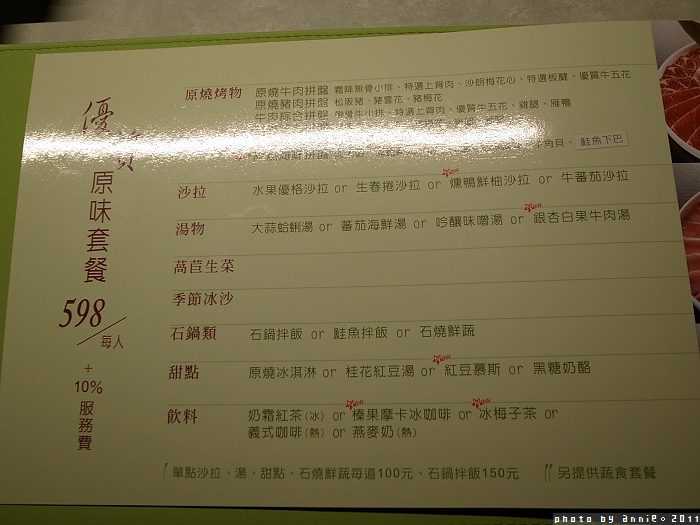 優質
原味套餐
598／每人
+
10%
服務費
原燒烤物
原燒牛肉拼盤 霜降無骨小排、特選上背肉、沙朗梅花心、特選板腱、優質牛五花
原燒豬肉拼盤 松阪豬、豬雪花、豬梅花
牛肉綜合拼盤 無骨牛小排、特選上背肉、優質牛五花、雞腿、雁鴨
牛角貝、鮭魚下巴
沙拉 水果優格沙拉 or 生春捲沙拉 or 燻鴨鮮柚沙拉 or 牛蕃茄沙拉
湯物 大蒜蛤蜊湯 or 蕃茄海鮮湯 or 吟釀味噌湯 or 銀杏白果牛肉湯
萵苣生菜
季節冰沙
石鍋類 石鍋拌飯 or 鮭魚拌飯 or 石燒鮮蔬
甜點 原燒冰淇淋 or 桂花紅豆湯 or 紅豆慕斯 or 黑糖奶酪
飲料 奶霜紅茶(冰) or 榛果摩卡冰咖啡 or 冰梅子茶 or
義式咖啡(熱) or 燕麥奶(熱)
單點沙拉、湯、甜點、石燒鮮蔬每道100元、石鍋拌飯150元
另提供蔬食套餐
photo by annie 2011